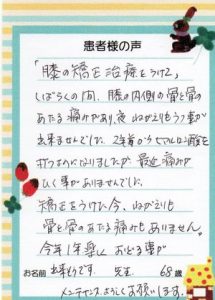 患者様の声
「膝の矯正治療をうけて」
しばらくの間、膝の内側の骨と骨の
あたる痛みがあり、夜 ねがえりもう事が
出来ませんでした。2年前からヒアルロン酸を
打つようになりましたが 最近痛みが
ひく事がありませんでした。
矯正をうけた今、ねがえりも
骨と骨のあたる痛みもありません。
今年1年楽に おどる事が
お名前 出来そうです。 先生 68歳
メンテナンス、よろしくお願いします。